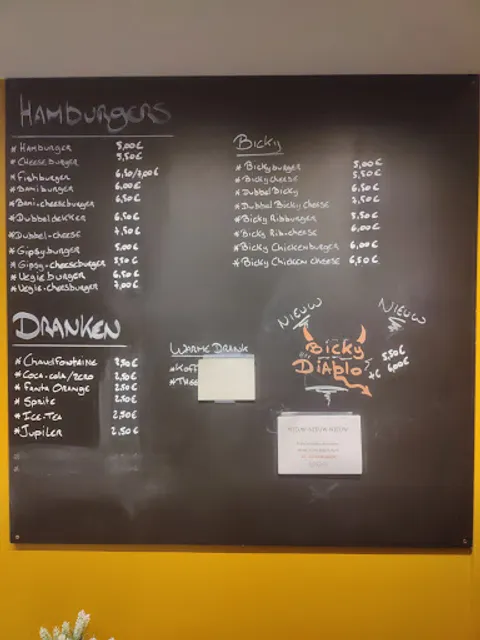 Hamburgers
* Hamburger 5,00€
* Cheeseburger 5,50€
* Fishburger 6,50/7,00€
* Bamiburger 6,00€
* Bami-cheeseburger 6,50€
* Dubbeldekker 6,50€
* Dubbel-cheese 7,50€
* Gipsyburger 5,00€
* Gipsy-cheeseburger 5,50€
* Vegieburger 6,50€
* Vegie-cheesburger 7,00€
Bicky
* Bickyburger 5,00€
* Bicky cheese 5,50€
* Dubbel Bicky 6,50€
* Dubbel Bicky cheese 7,50€
* Bicky Ribburger 5,50€
* Bicky Rib-cheese 6,00€
* Bicky Chickenburger 6,00€
* Bicky Chicken cheese 6,50€
Dranken
* Chaudfontaine 2,50€
* Coca-cola/zero 2,50€
* Fanta Orange 2,50€
* Sprite 2,50€
* Ice-Tea 2,50€
* Jupiler 2,50€
Warme Drank
* Koff
* Thee
Nieuw
Nieuw
Bicky
Diablo
5,50€
+c 6,00€